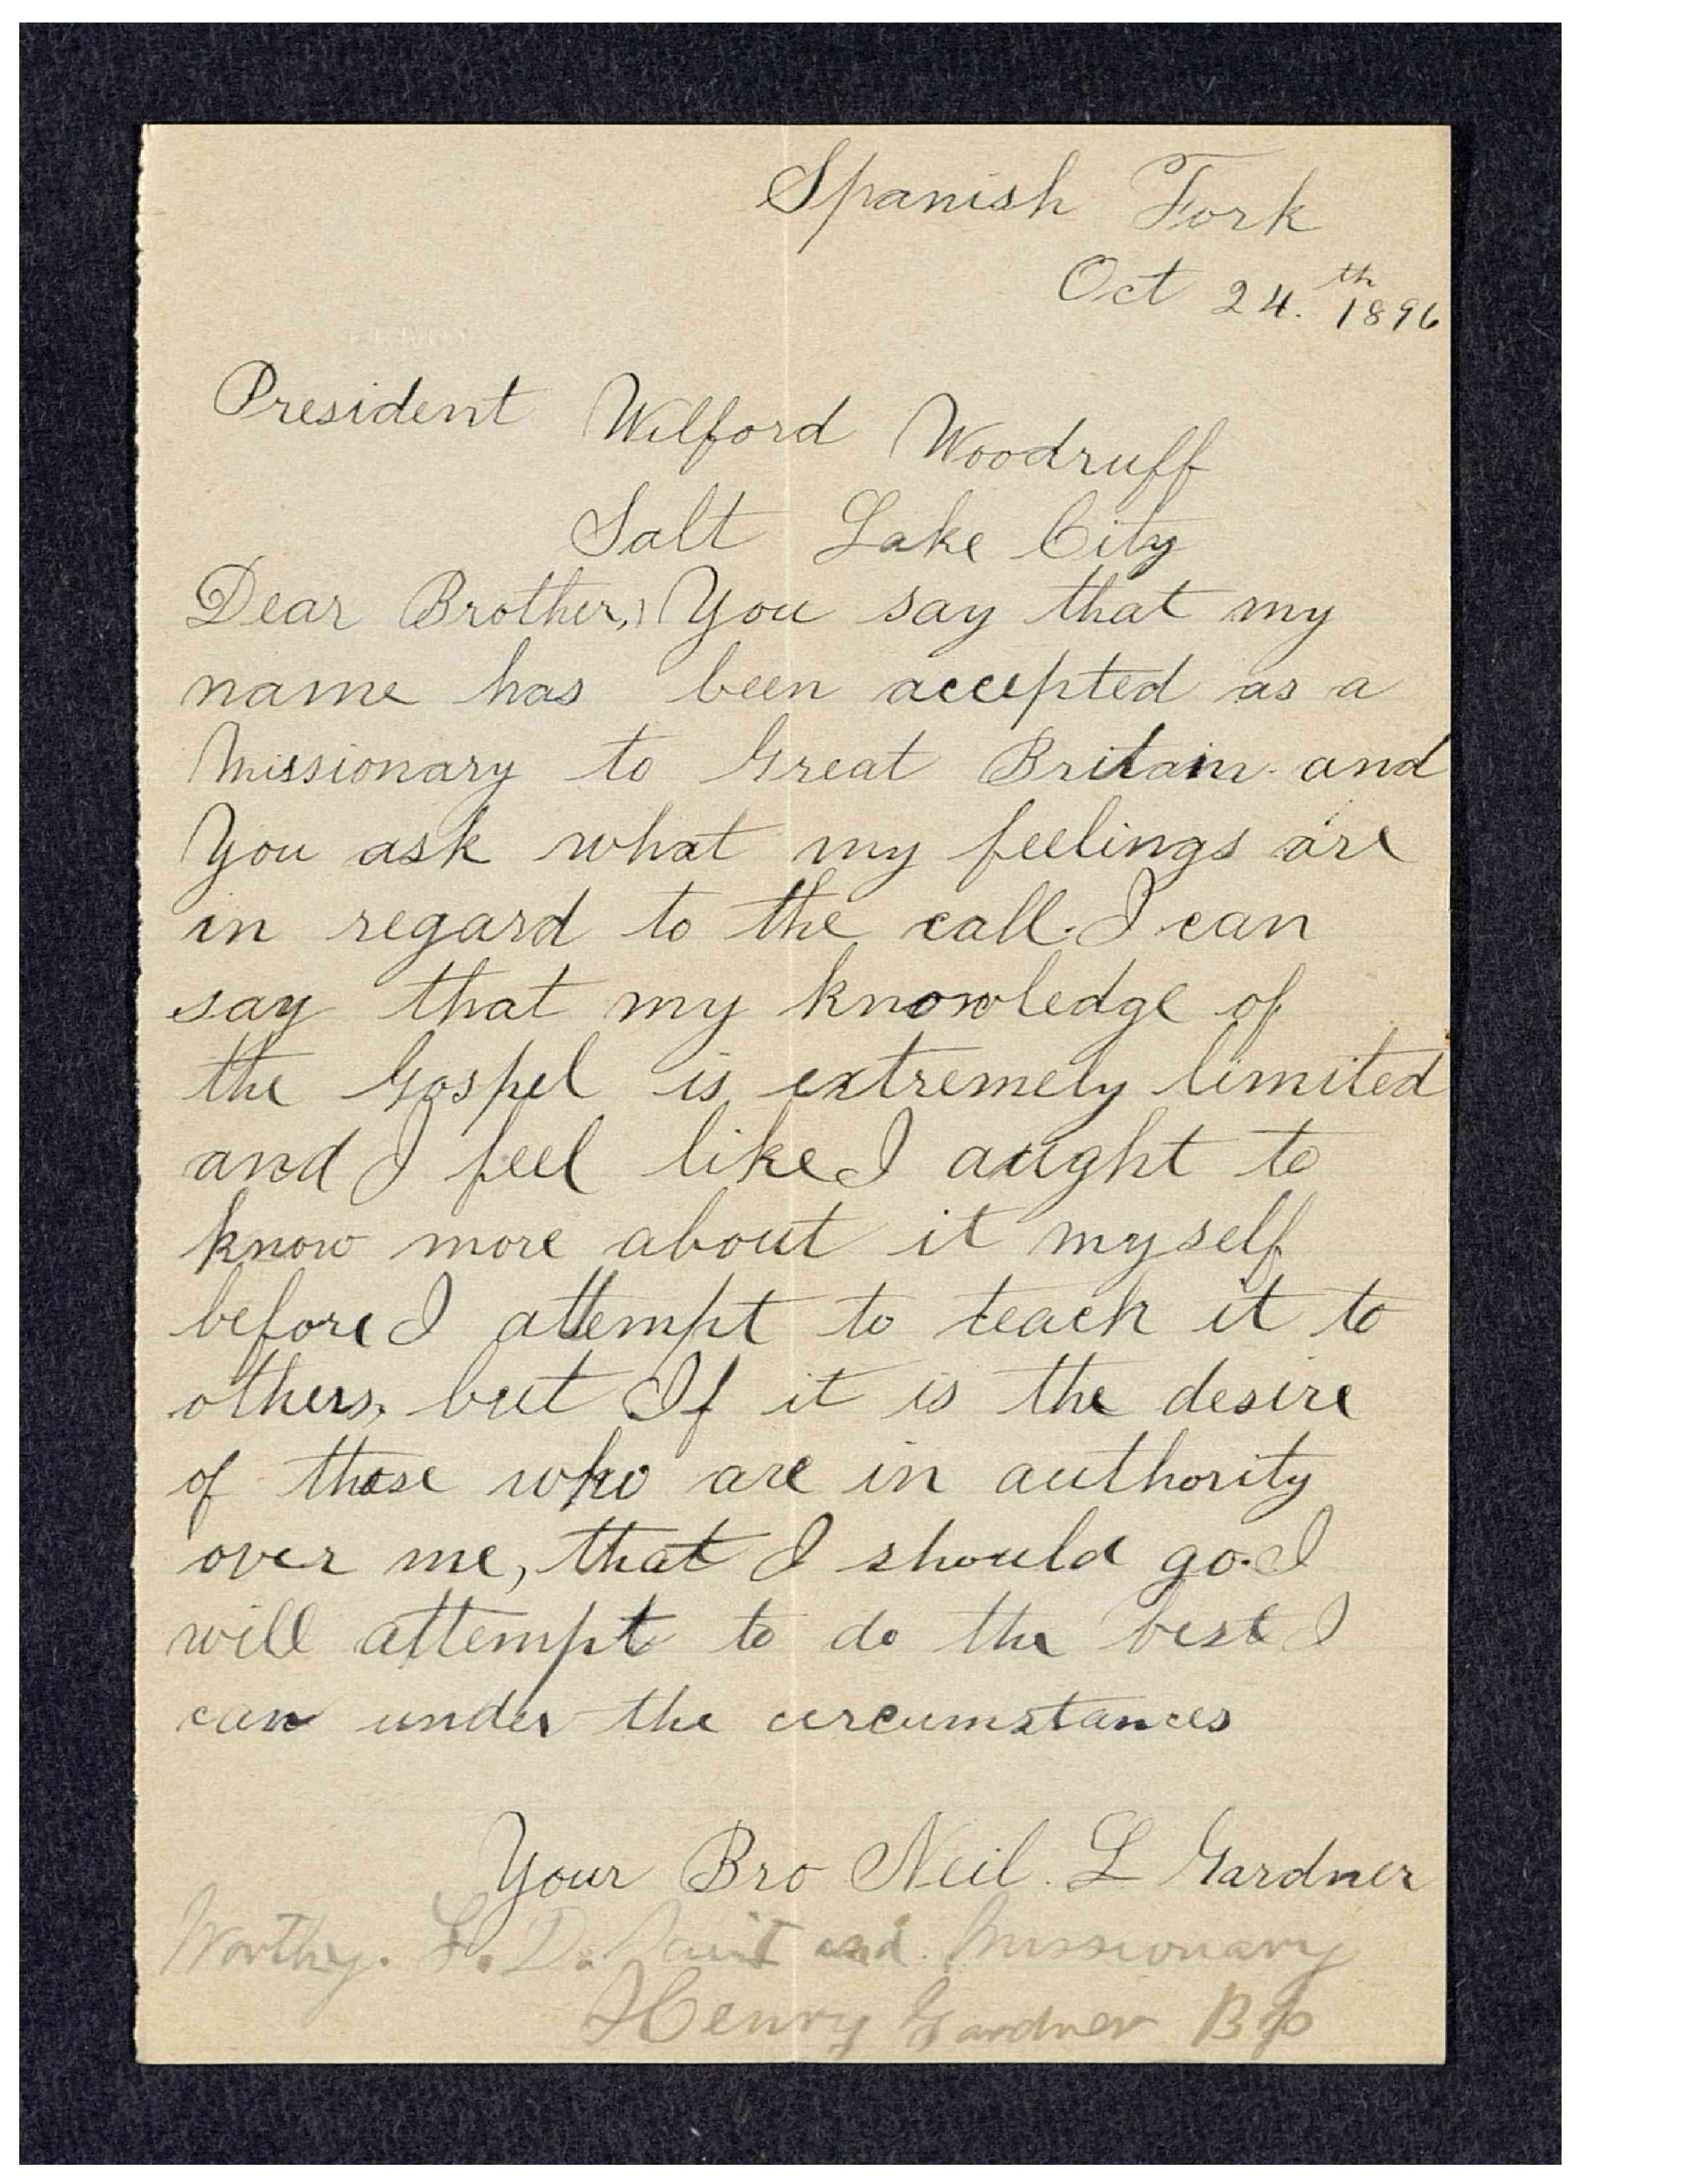 Spanish Fork
Oct 24.th 1896
President Wilford Woodruff
Salt Lake City
Dear Brother, You say that my
name has been accepted as a
Missionary to Great Britain and
You ask what my feelings are
in regard to the call. I can
say that my knowledge of
the Gospel is extremely limited
and I feel like I aught to
know more about it myself
before I attempt to teach it to
others, but If it is the desire
of those who are in authority
over me, that I should go. I
will attempt to do the best I
can under the circumstances
Your Bro Neil. L Gardner
Worthy. L. D. Saint and Missionary
Henry Gardner Bp